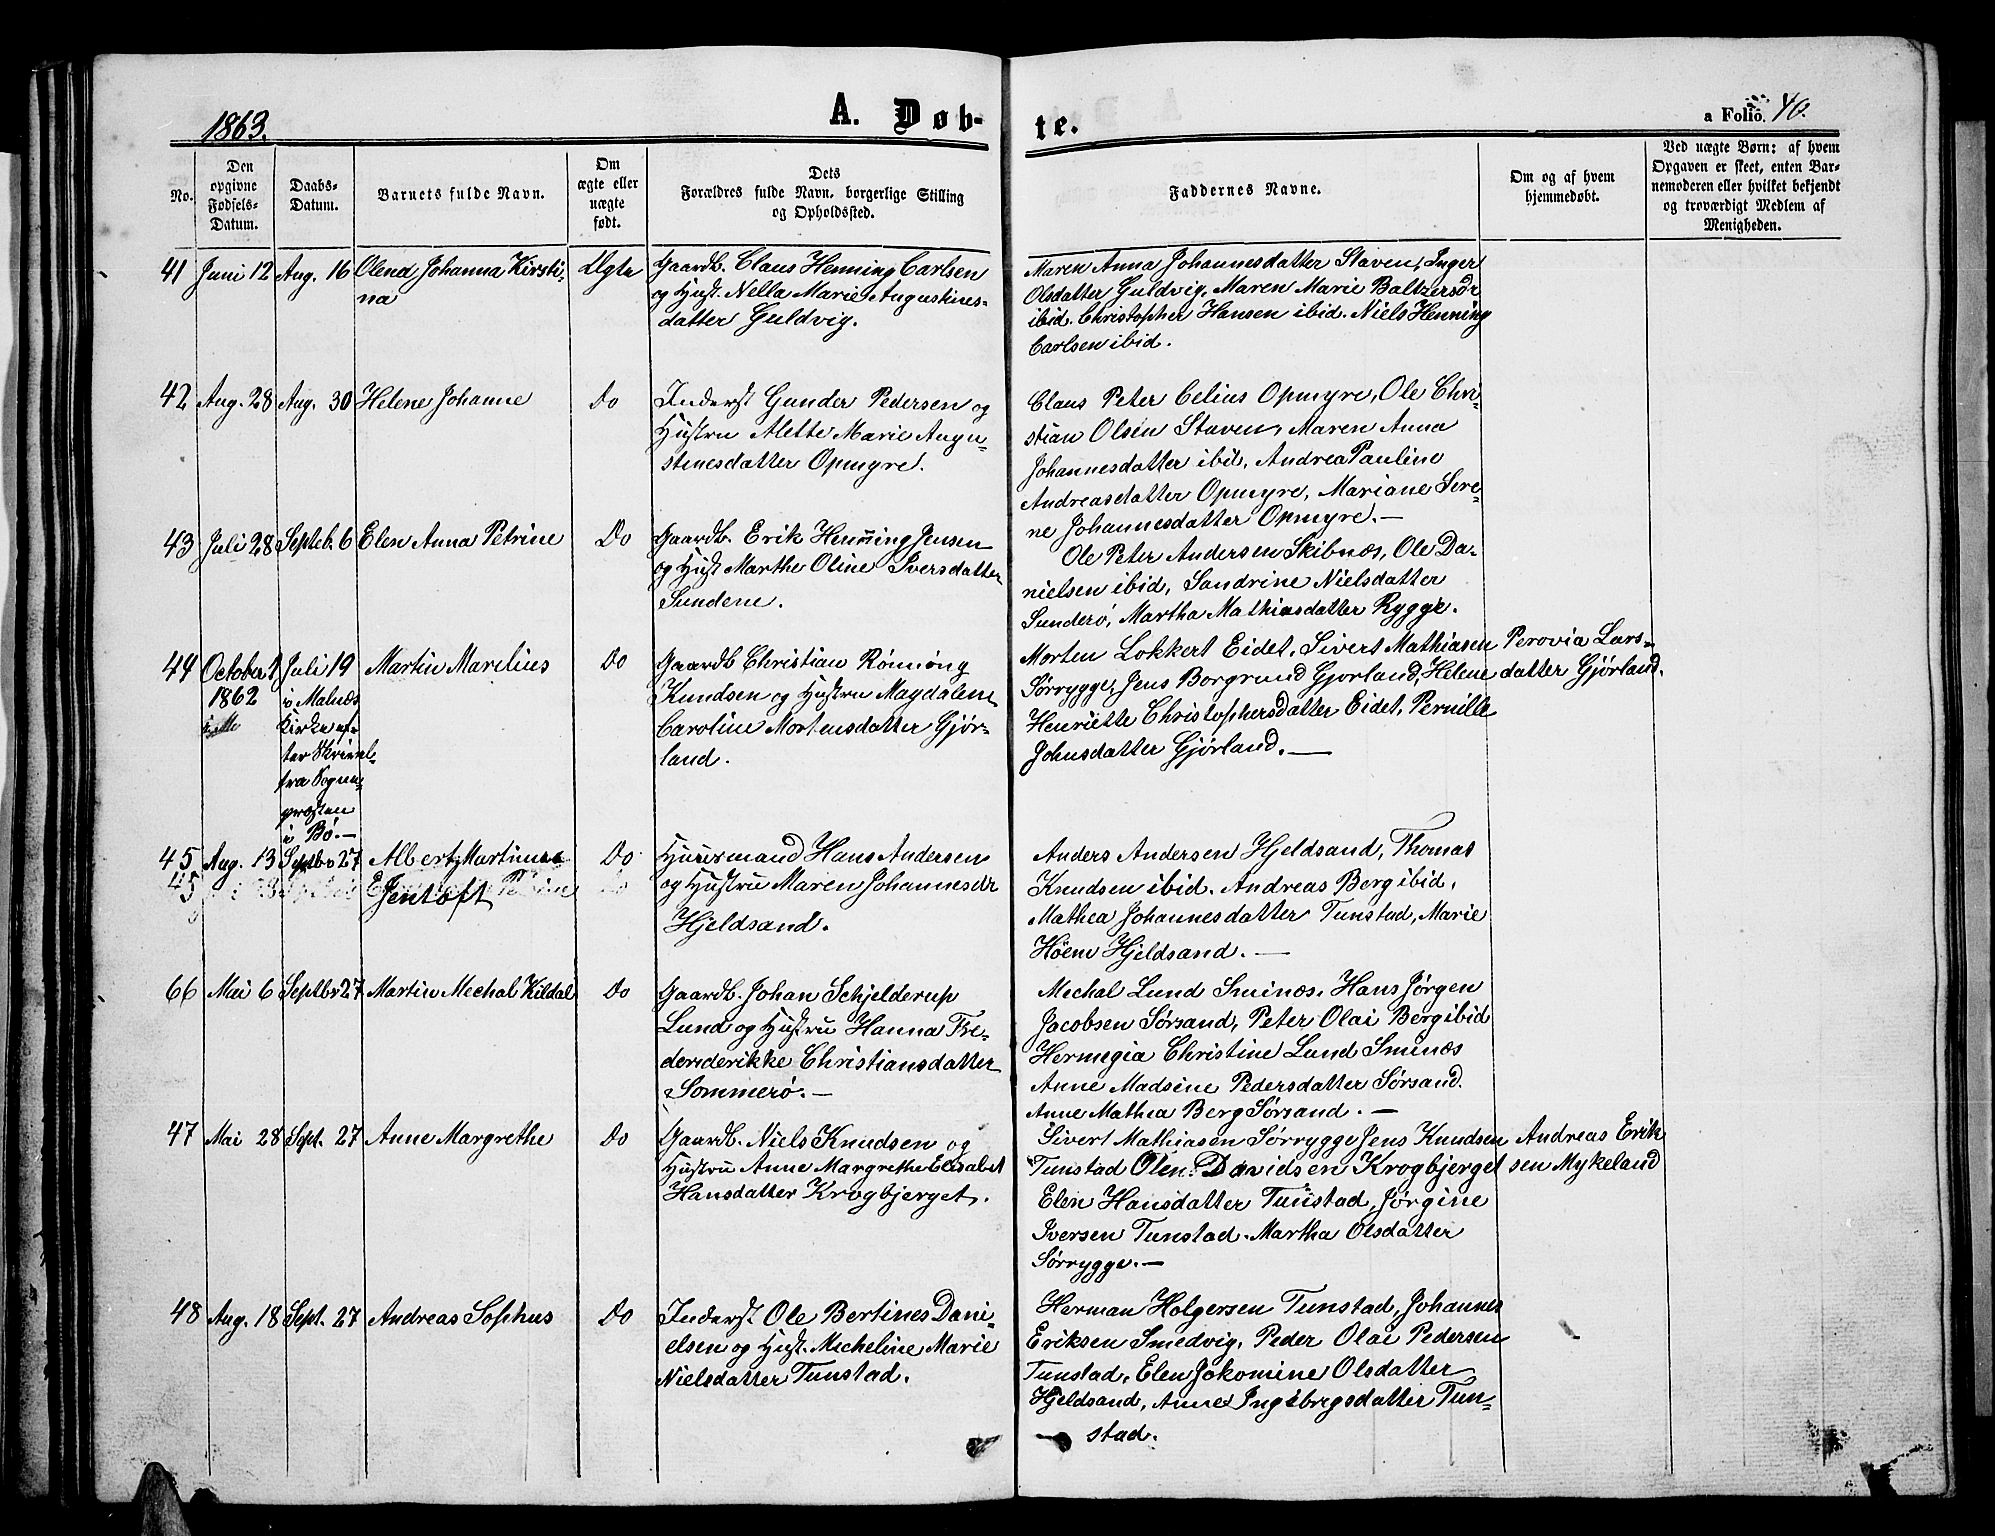 1863.
A. Døb-
te.
a Folio. 40.
No.
Den
opgivne
Fødsels-
Datum.
Daabs-
Datum.
Barnets fulde Navn.
Om
ægte eller
uægte
født.
Dets
Forældres fulde Navn, borgerlige Stilling
og Opholdssted.
Faddernes Navne.
Om og af hvem
hjemmedøbt.
Ved uægte Børn: af hvem
Opgaven er skeet, enten Bar-
nemoderen eller hvilket bekjendt
og troværdigt Medlem af
Menigheden.
41 Juni 12 Aug. 16 Olena Johanna Kirsti-
na
Ægte
Gaardb. Claus Henning Carlsen
og Hust. Nella Marie Augustines-
datter Guldvig.
Maren Anna Johannesdatter Staven, Inger
Olsdatter Guldvig, Maren Marie Baltzersdr
ibid. Christopher Hansen ibid. Niels Henning
Carlsen ibid.
42 Aug. 28 Aug. 30 Helene Johanne
Do
Inderst Gunder Pedersen og
Hustru Alette Marie Augu-
stinesdatter Opmyre.
Claus Peter Celius Opmyre, Ole Chri-
stian Olsen Staven, Maren Anna
Johannesdatter ibid, Andrea Pauline
Andreasdatter Opmyre, Mariane Sere-
ne Johannesdatter Opmyre.—
43 Juli 28 Septeb. 6 Elen Anna Petrine
Do
Gaardb. Erik Henning Jensen
og Hust Marthe Oline Iversdatter
Sundene.
Ole Peter Andersen Skibnæs, Ole Da-
nielsen ibid, Sandrine Nielsdatter
Sunderö, Martha Mathiasdatter Rygge.
44 October 1
1862
Juli 19
i Malnæs
Kirke ef-
ter Skrivel-
fra Sogne-
præsten
i Bö.—
Martin Marelius
Do
Gaardb Christian Rønning
Knudsen og Hustru Magdalene
Caroline Mortensdatter Gjør-
land.
Morten Lokkert Eidet, Sivert Mathiasen Perovia Lars-
Sørrygge, Jens Borgrund Gjorland, Helene datter Gjørland.
Henriette Christophersdatter Eidet, Pernille
Johnsdatter Gjørland.—
45 Aug. 13 Septbr 27 Albert Martinus
45
Jentoft
Do
Huusmand Hans Andersen
og Hustru Maren Johannesdr
Hjeldsand.
Anders Andersen Hjeldsand, Thomas
Knudsen ibid. Andreas Berg ibid,
Mathea Johannesdatter Tunstad, Marie
Höem Hjeldsand.—
66 Mai 6 Septbr 27 Martin Mechal Kildal
Do
Gaardb. Johan Schjelderup
Lund og Hustru Hanna Fre-
deriderikke Christiansdatter
Sommerö.—
Mechal Lund Sminæs, Hans Jørgen
Jacobsen Sørsand, Peter Olai Berg ibid
Hermegia Christine Lund Sminæs
Anne Madsine Pedersdatter Sørsand.
Anne Mathea Berg Sørsand.—
47 Mai 28 Sept. 27 Anne Margrethe
Do
Gaardb. Niels Knudsen og
Hustru Anne Margrethe Elisabet
Hansdatter Krogbjerget.
Sivert Mathiasen Sørrygge Jens Knudsen Andreas Erik
Tunstad Olen Davidsen Krogbjerget sen Mykeland
Elen Hansdatter Tunstad, Jørgine
Iversen Tunstad. Martha Olsdatter
Sørrygge.—
48 Aug. 18 Sept. 27 Andreas Sophus
Do
Inderst Ole Bertines Dani-
elsen og Hust. Micheline Marie
Nielsdatter Tunstad.
Herman Holgersen Tunstad, Johannes
Eriksen Smedvig, Peder Olai Pedersen
Tunstad, Elen Jakomine Olsdatter
Hjeldsand, Anne Ingebrigsdatter Tun-
stad.